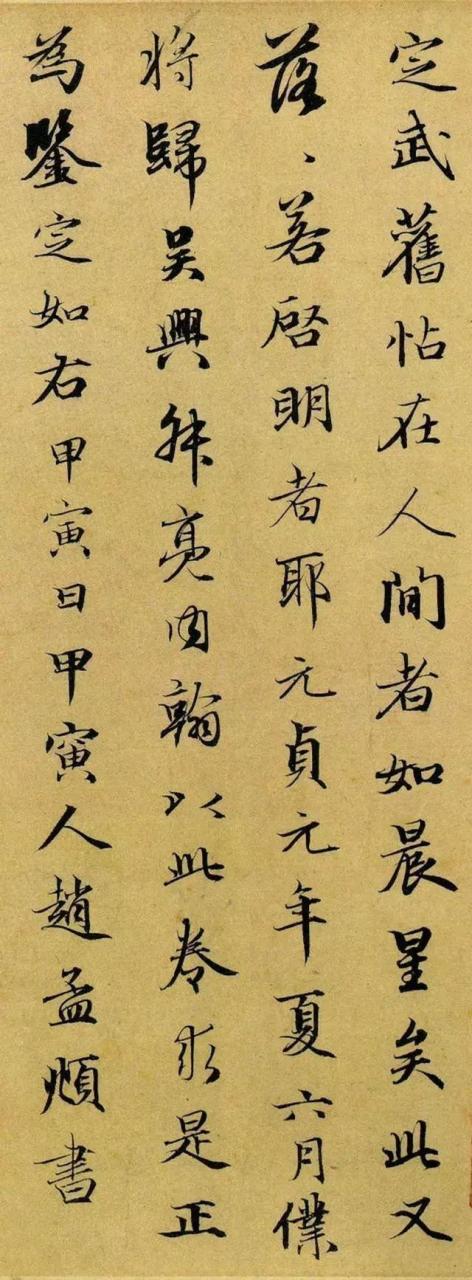 定武舊帖在人間者如晨星矣此又
落、若啓明者耶元貞元年夏六月僕
將歸吳興叔亮內翰以此卷求是正
為鑒定如右甲寅日甲寅人趙孟頫書